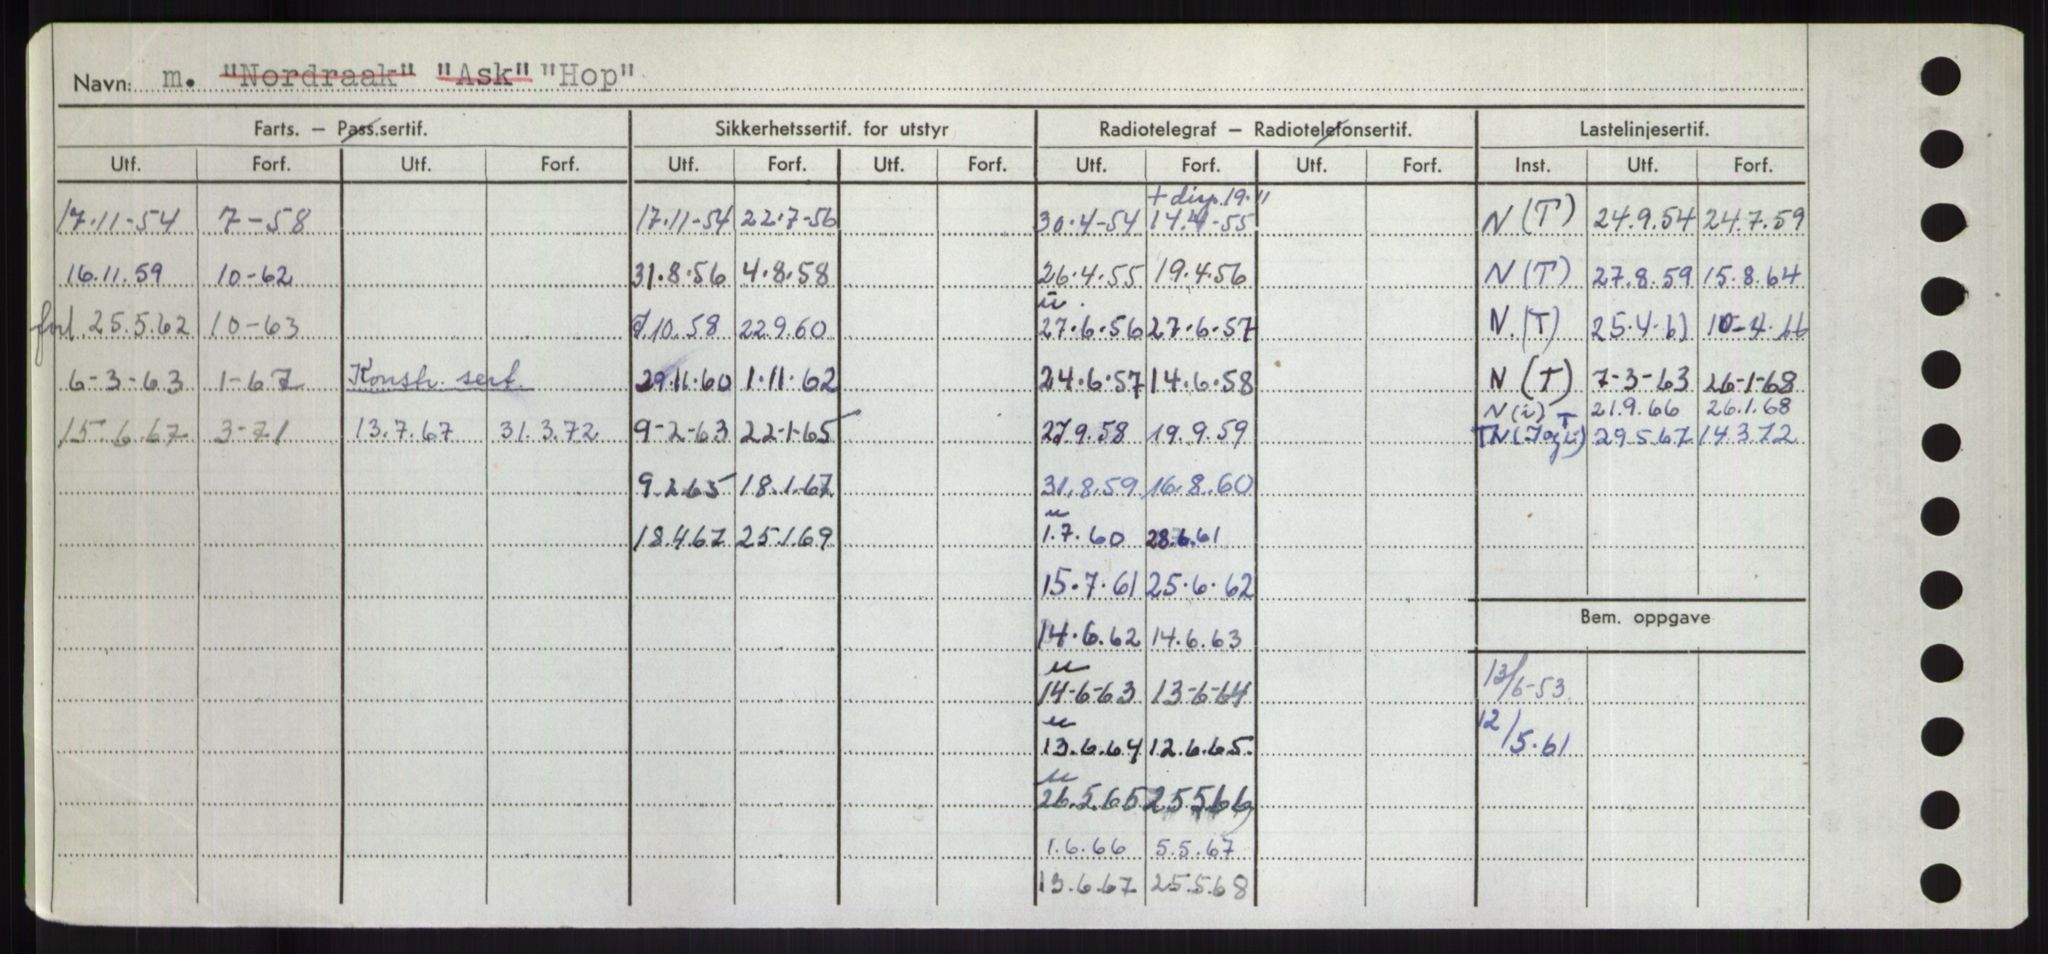 Navn: m. "Nordraak" "Ask" "Hop"
Farts. – Pass.sertif. Sikkerhetssertif. for utstyr Radiotelegraf – Radiotelefonsertif. Lastelinjesertif.
Utf. Forf. Utf. Forf. Utf. Forf. Utf. Forf. Utf. Forf. Utf. Forf. Inst. Utf. Forf.
+ disp. 19.11
17.11-54 7-58 17.11-54 22.7-56 30.4-54 14.4-55 N(T) 24.9.54 24.7.59
16.11.59 10-62 31.8.56 4.8.58 26.4.55 19.4.56 N(T) 27.8.59 15.8.64
u.
forl. 25.5.62 10-63 7.10.58 22.9.60 27.6.56 27.6.57 N.(T) 25.4.61 10-4.66
6-3-63 1-67 Konstr. sert. 29.11.60 1.11.62 24.6.57 14.6.58 N(T) 7-3-63 26-1-68
N(i) T 21.9.66 26.1.68
15.6.67 3-71 13.7.67 31.3.72 9-2-63 22-1-65 27.9.58 19.9.59 29.5.67 14.3.72
9.2.65 18.1.67 31.8.59 16.8.60
u
18.4.67 25.1.69 1.7.60 28.6.61
15.7.61 25.6.62
Bem. oppgave
14.6.62 14.6.63
u
14-6-63 13-6-64 13/6-53
u
13.6.64 12.6.65. 12/5.61
u
26.5.65 25.5.66
1.6.66 5.5.67
13.6.67 25.5.68